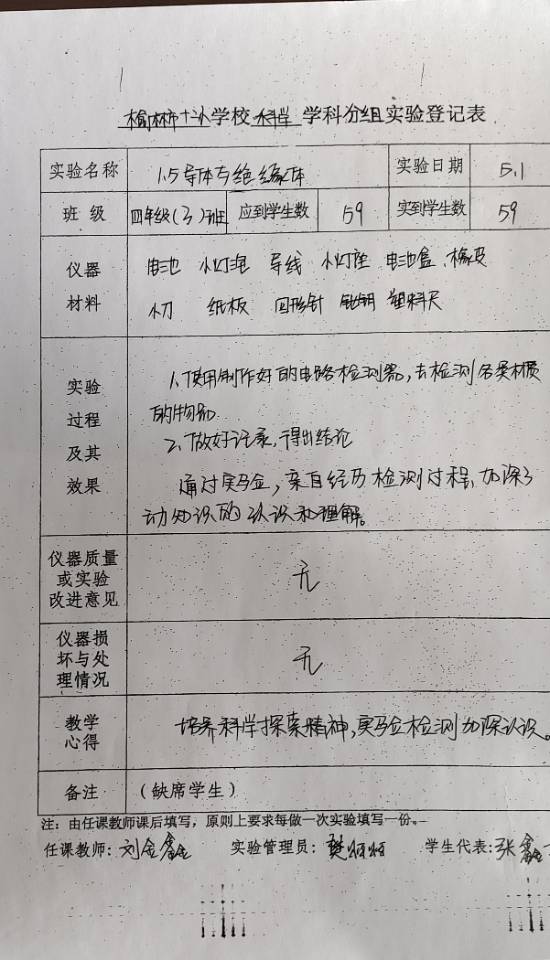 榆林市十二小学校 科学 学科分组实验登记表
实验名称 1.5导体与绝缘体 实验日期 5.1
班 级 四年级(3)班 应到学生数 59 实到学生数 59
仪器 电池 小灯泡 导线 小灯座 电池盒 橡皮
材料 木刀 纸板 回形针 塑料尺
实验 1、使用制作好的电路检测器,去检测各类材质
过程 的物品
及其 2、做好记录,得出结论
效果 通过实验,亲自经历检测过程,加深了
动知识的认识和理解。
仪器质量
或实验 无
改进意见
仪器损
坏与处 无
理情况
教学 培养科学探索精神,实验检测加深认识。
心得
备注 (缺席学生)
注:由任课教师课后填写,原则上要求每做一次实验填写一份。
任课教师: 刘金鑫 实验管理员: 学生代表: 张鑫